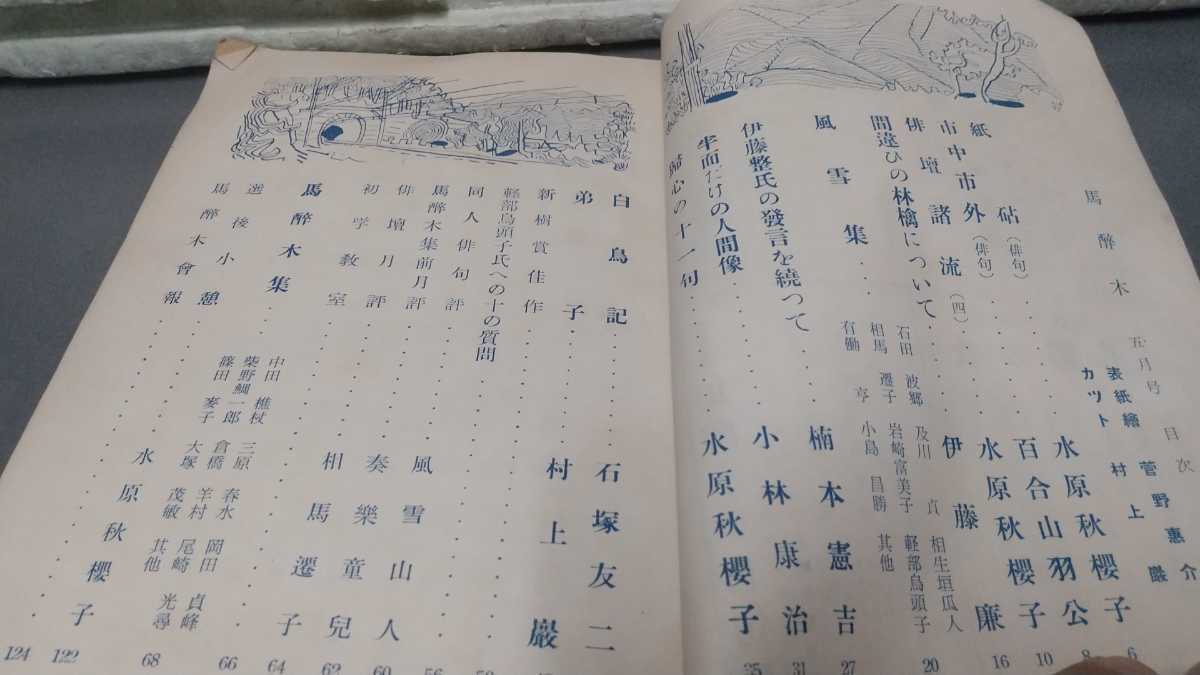 馬醉木 五月号 目次
表紙繪 菅野惠介
カツト 村上 巌
砧(俳句) 水原秋櫻子 6
紙 百合山羽公 8
市中市外(俳句) 水原秋櫻子 10
俳壇諸流(四) 伊藤 廉 16
間違ひの林檎について
風雪集 20
石田 波郷 及川 貞 相生垣瓜人
相馬 遷子 岩崎富美子 軽部烏頭子
有働 亨 小島 昌勝 其他
伊藤整氏の發言を繞つて 楠本憲吉 27
半面だけの人間像 小林康治 31
歸心の十一句 水原秋櫻子 35
白鳥記 石塚友二
弟子 村上 巖
新樹賞佳作
軽部烏頭子氏への十の質問
同人俳句評 56
馬醉木集前月評 風雪山人 60
俳壇月評 奏樂童兒 62
初学教室 相馬遷子 64
馬醉木集 66
中田 樵杖 三原 春水 岡田 貞峰
柴野鯛一郎 倉橋 羊村 尾崎 光尋
篠田 麥子 大塚 茂敏 其他
選後小憩 水原秋櫻子 68
馬醉木會報 122
124